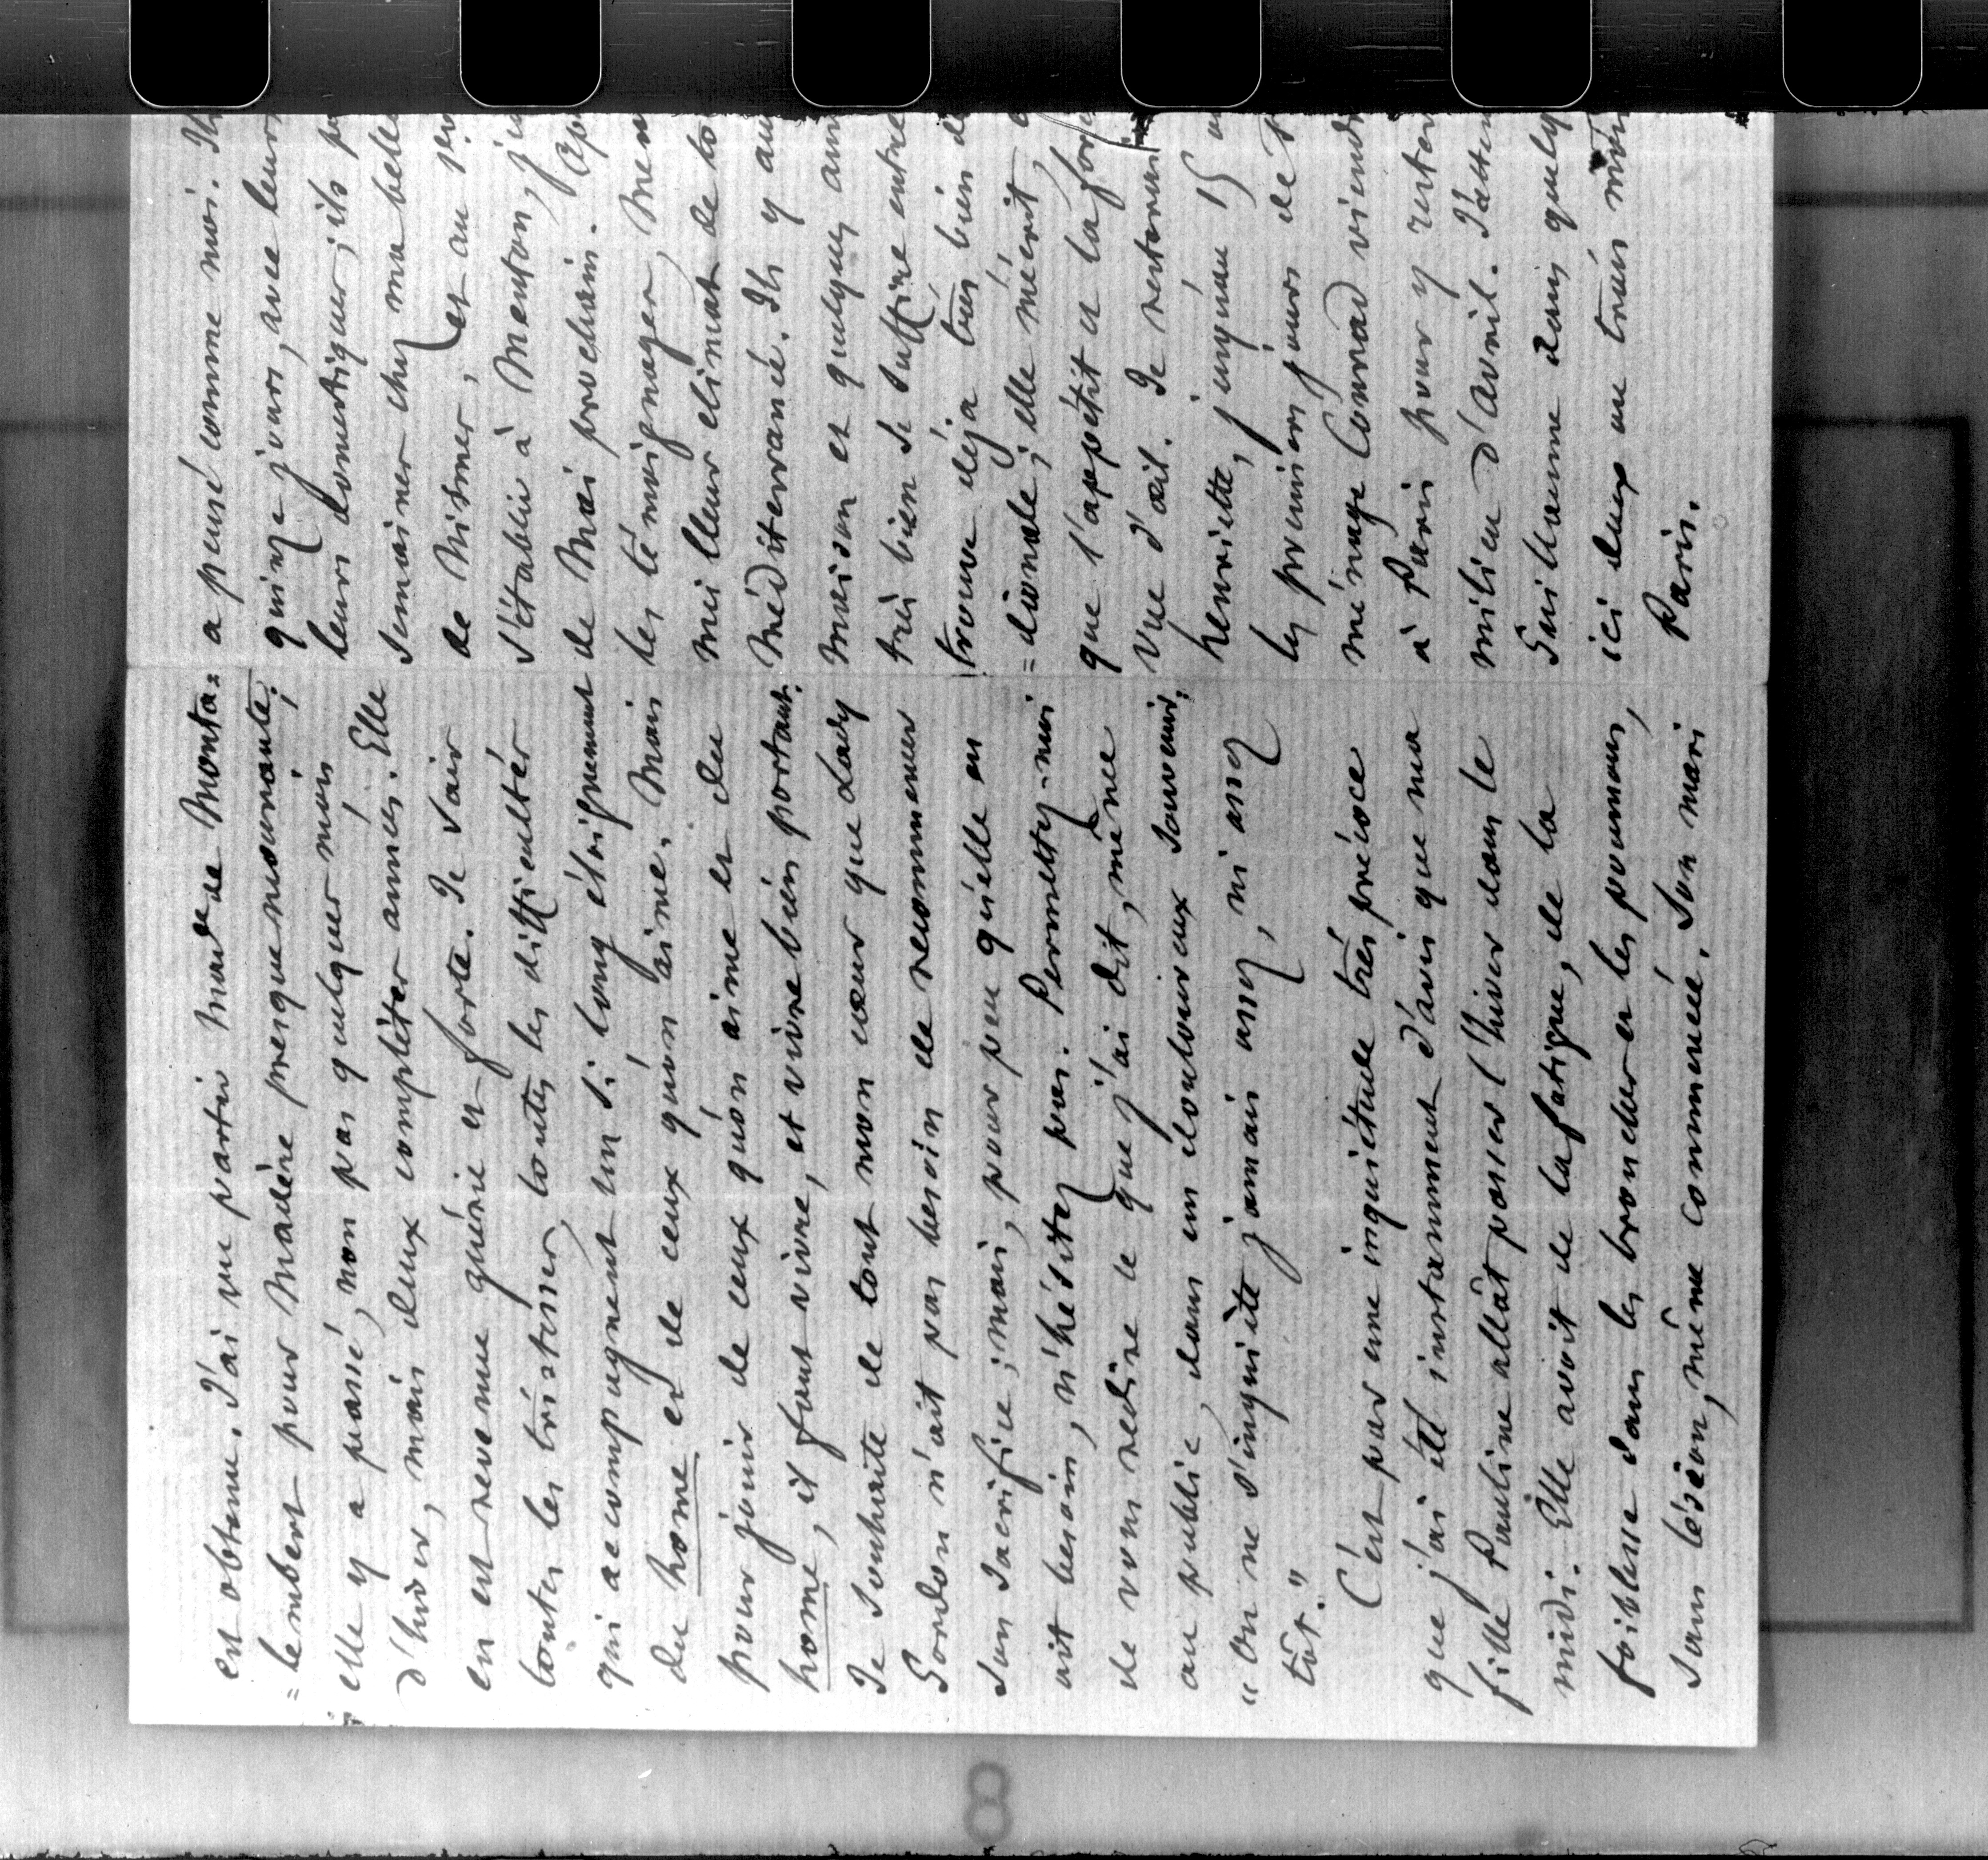 est obtenu. J'ai vu partir Mad.e de Monta=
=lembert pour Madère presque mourante;
elle y a passé, non pas quelques mois
d'hiver, mais deux complètes années. Elle
en est revenue guérie et forte. Je sais
toutes les tristesses, toutes les difficultés
qui accompagnent un si long éloignement
du home et de ceux qu'on aime. Mais
pour jouir de ceux qu'on aime et du
home, il faut vivre, et vivre bien portant.
Je souhaite de tout mon cœur que Lady
Gordon n'ait pas besoin de recommencer
son sacrifice; mais, pour peu qu'elle en
ait besoin, n'hésitez pas. Permettez-moi
de vous redire ce que j'ai dit, même
au public, dans un douloureux souvenir:
"On ne s'inquiète jamais assez, ni assez
tôt."
C'est par une inquiétude très précoce
que j'ai été instamment d'avis que ma
fille Pauline allât passer l'hiver dans le
midi. Elle avoit de la fatigue, de la
foiblesse dans les bronches et les poumons,
sans lésion, même commencée. Son mari
a pensé comme moi. Ils
quinze jours, avec leurs
leurs domestiques; ils
semaines chez ma belle
de Nismes, et au
s'établir à Menton,
de Mai prochain.
les témoignages,
meilleur climat de
Méditerranée. Ils y
maison et quelques
très bien se suffire entre
trouve déjà très bien
=dionale; elle m'écrit,
que l'appétit et la
vue d'œil. Je resterai
henriette, jusqu'au 15
les premiers jours de
ménage Conrad
à Paris pour y rester
milieu d'avril. J'attens
Guillaume dans
ici deux ou trois mois
Paris.